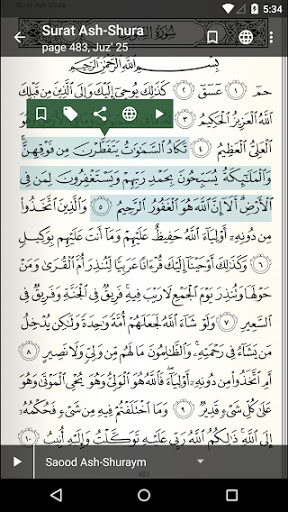 5:34
Surat Ash-Shura
Surat Ash-Shura
page 483, Juz' 25
بِسْمِ اللَّهِ الرَّحْمَٰنِ الرَّحِيمِ
حمٓ ١ عٓسٓقٓ ٢ كَذَٰلِكَ يُوحِىٓ إِلَيْكَ وَإِلَى ٱلَّذِينَ مِن قَبْلِكَ
ٱللَّهُ ٱلْعَزِيزُ ٱلْحَكِيمُ ٣
ٱلْعَلِىُّ ٱلْعَظِيمُ ٤ تَكَادُ ٱلسَّمَٰوَٰتُ يَتَفَطَّرْنَ مِن فَوْقِهِنَّ
وَٱلْمَلَٰٓئِكَةُ يُسَبِّحُونَ بِحَمْدِ رَبِّهِمْ وَيَسْتَغْفِرُونَ لِمَن فِى
ٱلْأَرْضِ أَلَآ إِنَّ ٱللَّهَ هُوَ ٱلْغَفُورُ ٱلرَّحِيمُ ٥ وَٱلَّذِينَ ٱتَّخَذُوا۟
مِن دُونِهِۦٓ أَوْلِيَآءَ ٱللَّهُ حَفِيظٌ عَلَيْهِمْ وَمَآ أَنتَ عَلَيْهِم بِوَكِيلٍ
٦ وَكَذَٰلِكَ أَوْحَيْنَآ إِلَيْكَ قُرْءَانًا عَرَبِيًّا لِّتُنذِرَ أُمَّ ٱلْقُرَىٰ وَمَنْ
حَوْلَهَا وَتُنذِرَ يَوْمَ ٱلْجَمْعِ لَا رَيْبَ فِيهِ فَرِيقٌ فِى ٱلْجَنَّةِ وَفَرِيقٌ فِى
ٱلسَّعِيرِ ٧ وَلَوْ شَآءَ ٱللَّهُ لَجَعَلَهُمْ أُمَّةً وَٰحِدَةً وَلَٰكِن يُدْخِلُ
مَن يَشَآءُ فِى رَحْمَتِهِۦ وَٱلظَّٰلِمُونَ مَا لَهُم مِّن وَلِىٍّ وَلَا نَصِيرٍ ٨
أَمِ ٱتَّخَذُوا۟ مِن دُونِهِۦٓ أَوْلِيَآءَ فَٱللَّهُ هُوَ ٱلْوَلِىُّ وَهُوَ يُحْىِ ٱلْمَوْتَىٰ وَهُوَ
عَلَىٰ كُلِّ شَىْءٍ قَدِيرٌ ٩ وَمَا ٱخْتَلَفْتُمْ فِيهِ مِن شَىْءٍ فَحُكْمُهُۥٓ
إِلَى ٱللَّهِ ذَٰلِكُمُ ٱللَّهُ رَبِّى عَلَيْهِ تَوَكَّلْتُ وَإِلَيْهِ أُنِيبُ ١٠
Saood Ash-Shuraym
483